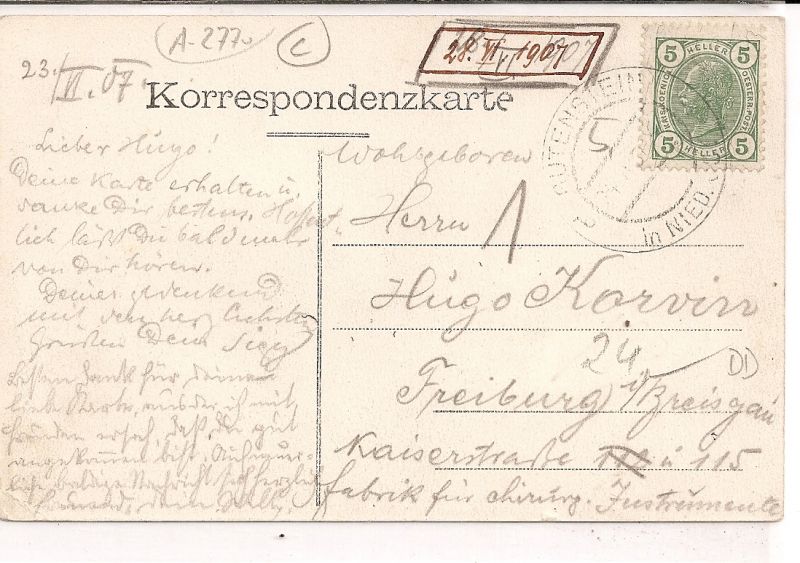 A-2770
C
28. VI. 1907
23. VI. 07.
Korrespondenzkarte
5 HELLER 5
KAIS. KOENIGL. OESTERR. POST
5 HELLER 5
GUTENSTEIN
in NIED.
Lieber Hugo!
Deine Karte erhalten u.
danke Dir bestens. Hoffent-
lich läßt Du bald mehr
von Dir hören.
Deiner gedenkend
mit den herzlichsten
Grüßen Dein Sigg
Besten Dank für Deine
liebe Karte, aus der ich mit
Freuden ersah, daß Du gut
angekommen bist.
baldige Nachricht
Freund, Dein Willy
Wohlgeboren
Herrn
1
Hugo Korvin
24
DD
Freiburg i/Breisgau
Kaiserstraße 115
fabrik für chirurg. Instrumente